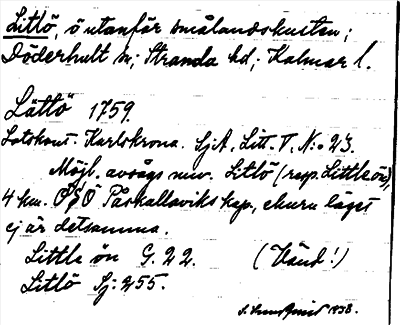 Litlö, ö utanför smålandskusten;
Döderhult sn; Stranda hd; Kalmar l.
Lättö 1759.
Lotskont. Karlskrona. SjA, Litt. T. N:o 23.
Möjl. avsågs nuv. Litlö (resp. Little ön),
4 km. OSO Påskallaviks kap., ehuru läget
ej är detsamma.
Little ön G. 22. (Vänd!)
Litlö Sj: 255.
S. Lundqvist 1938.